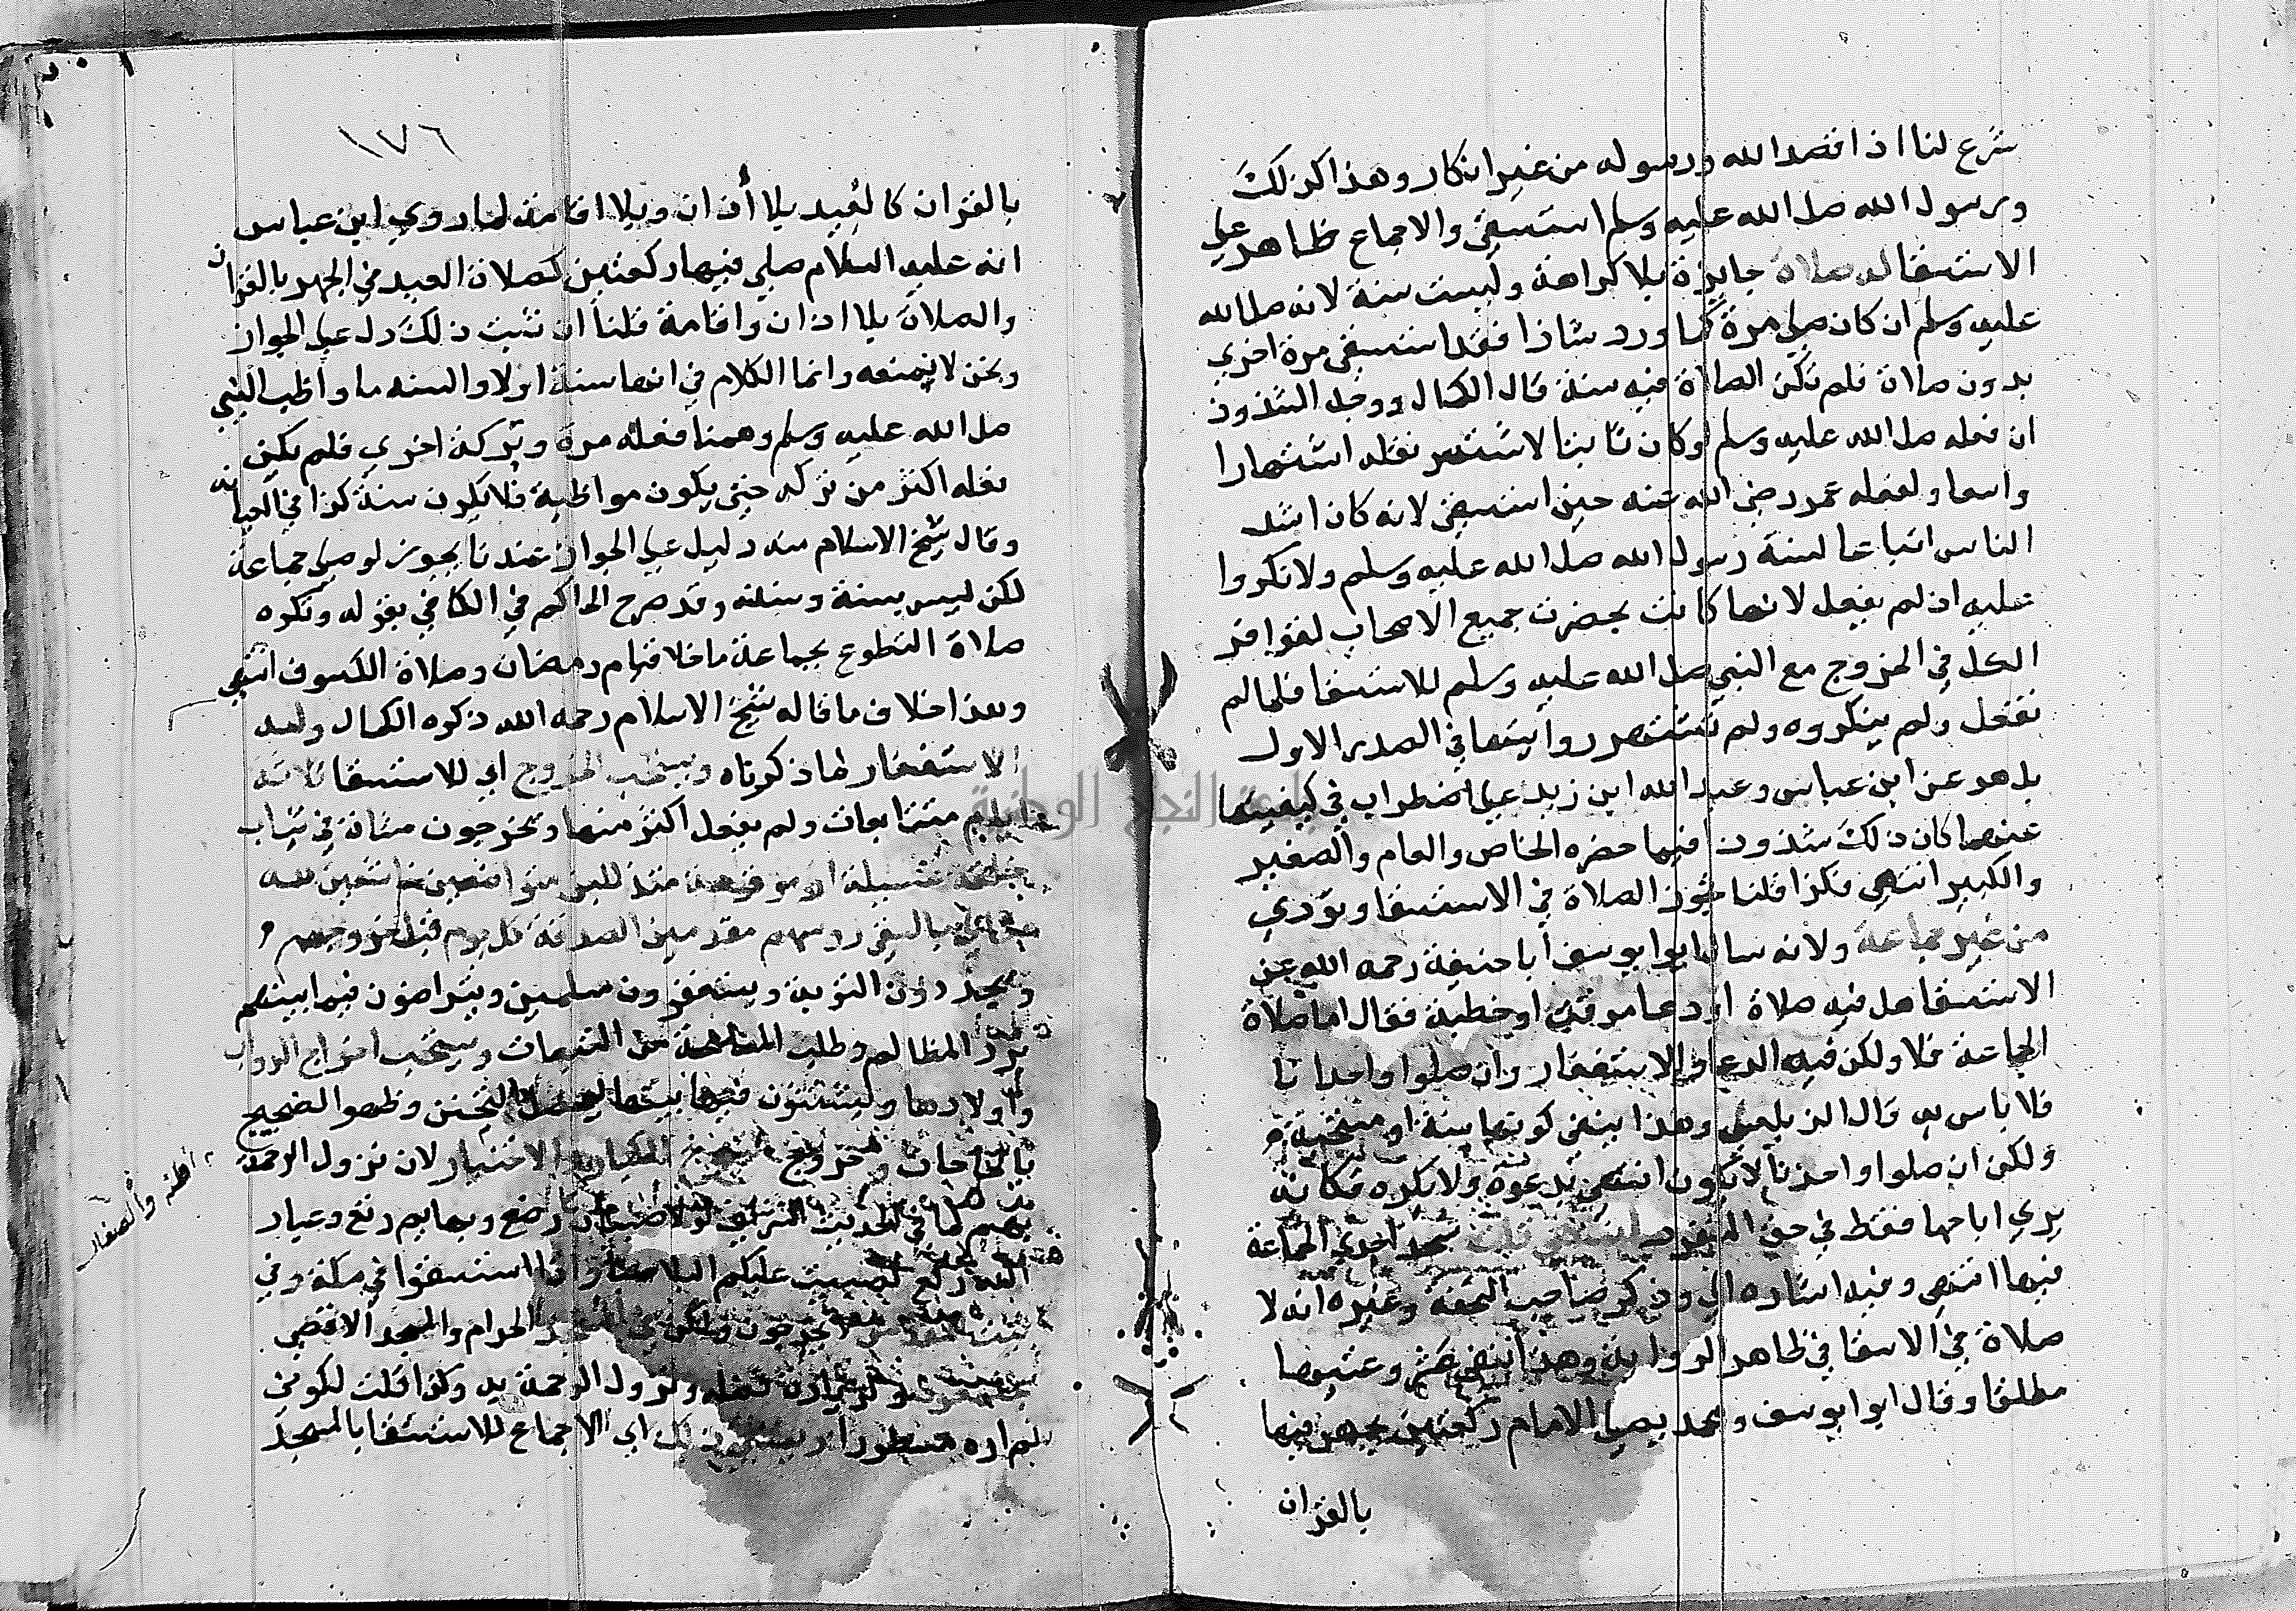 شرع لنا اذا قصه الله ورسوله من غير انكار وهذا كذلك
ورسول الله صلى الله عليه وسلم استسقى والاجماع ظاهر على
الاستسقا له صلاة جايزة بلا كراهة وليست سنة لانه صلى الله
عليه وسلم ان كان صلى مرة كما ورد شاذا فقد استسقى مرة اخرى
بدون صلاة فلم تكن الصلاة فيه سنة قال الكمال ووجه الشذوذ
ان فعله صلى الله عليه وسلم لو كان ثابتا لاشتهر نقله اشتهارا
واسعا ولفعله عمر رضي الله عنه حين استسقى لانه كان اشد
الناس اتباعا لسنة رسول الله صلى الله عليه وسلم ولانكروا
عليه اذ لم يفعل لانها كانت بحضرت جميع الاصحاب لتوافر
الكل في الخروج مع النبي صلى الله عليه وسلم للاستسقا فلما لم
تفعل ولم ينكروه ولم تشتهر روايتها في الصدر الاول
بل هو عن ابن عباس وعبد الله ابن زيد على اضطراب في كيفيتها
عنهما كان ذلك شذوذا فيما حضره الخاص والعام والصغير
والكبير انتهى فكذا قلنا بجوز الصلاة في الاستسقا ويؤدي
من غير جماعة ولانه سال ابو ابو سف ابا حنيفة رحمه الله عن
الاستسقا هل فيه صلاة او دعا موقت او خطبة فقال اما صلاة
الجماعة فلا ولكن فيه الدعا والاستغفار وان صلوا وحدانا
فلا باس به قال الزيلعي وهذا ينفي كونها سنة او مستحبة
ولكن ان صلوا وحدنا لا تكون انتهى بدعوة ولا يكره فكانه
يرى اباحها فقط في حق المنفرد
فيها انتهى وفيه اشاره الى وذكر صاحب التحفة وغيره انه لا
صلاة في الاسقا في ظاهر الرواية وهذا ينفي مشروعيتها
مطلقا وقال ابو ابو سف ومحمد يصلي الامام ركعتين يجهر فيها
بالقران
١٧٦
بالقران كالعيد بلا أذان وبلا اقامة لما روي ابن عباس
انه عليه السلام صلى فيها ركعتين كصلاة العيد في الجهر بالقران
والصلاة بلا اذان واقامة قلنا ان ثبت ذلك دل على الجواز
ونحن لا نمنعه وانما الكلام في انها سنة اولا والسنه ما واظب النبي
صلى الله عليه وسلم وهمنا فعله مرة وتركه اخرى فلم يكن
فعله اكثر من تركه حتى يكون مواظبة فلا يكون سنة كذا في
وقال شيخ الاسلام فيه دليل على الجواز عندنا يجوز لو صلى جماعة
لكن ليس بسنة وقد صرح الحاكم في الكافي بقوله وتكره
صلاة التطوع بجماعة ما خلا قيام رمضان وصلاة الكسوف انتهى
وهذا خلاف ما قاله شيخ الاسلام رحمه الله ذكره الكمال وله
الاستغفار لما ذكرناه ويستحب الخروج اي للاستسقا ثلاثة
ايام متتابعات ولم يفعل اكثر منها ويخرجون مشاة في ثياب
غسيلة او مرقعة متذللين متواضعين خاشعين لله
روسهم مقدمين الصدقة كل يوم قبل خروجهم
ويجددون التوبة ويستغفرون للمسلمين ويتراضون فيما بينهم
برد المظالم وطلب المسامحة من التبعات ويستحب اخراج الدواب
واولادها ويشتتون فيما بينها ليحصل التحنن وظهوا الضجيج
بالحاجات وخروج الشيوخ الكبار والاختيار لان نزول الرحمة
بهم كما في الحديث الشريف لولا صبيان رضع وبهايم رتع وعباد
الله ركع لصب عليكم البلا صبا واذا استسقوا في مكة وفي
بيت المقدس لا يخرجون ولكن في المسجد الحرام والمسجد الاقصى
ونزول الرحمة به وكذا قلت لكونى
لم اره مسطورا اي الاجماع للاستسقا بالمسجد
اطله والصغار
جامعة النجاح الوطنية